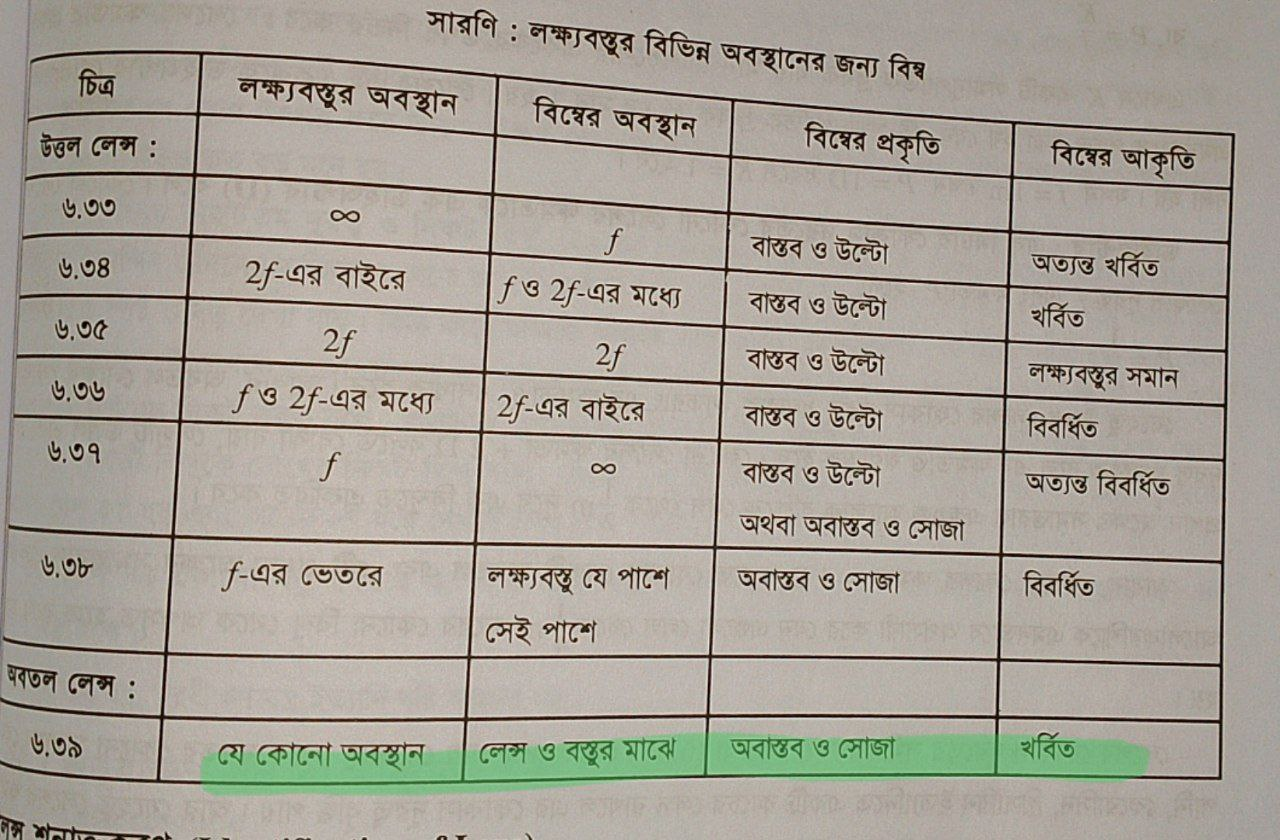 সারণি : লক্ষ্যবস্তুর বিভিন্ন অবস্থানের জন্য বিম্ব
চিত্র লক্ষ্যবস্তুর অবস্থান বিম্বের অবস্থান বিম্বের প্রকৃতি বিম্বের আকৃতি
উত্তল লেন্স :
৬.৩৩ ∞ f বাস্তব ও উল্টো অত্যন্ত খর্বিত
৬.৩৪ 2f-এর বাইরে f ও 2f-এর মধ্যে বাস্তব ও উল্টো খর্বিত
৬.৩৫ 2f 2f বাস্তব ও উল্টো লক্ষ্যবস্তুর সমান
৬.৩৬ f ও 2f-এর মধ্যে 2f-এর বাইরে বাস্তব ও উল্টো বিবর্ধিত
৬.৩৭ f ∞ বাস্তব ও উল্টো অত্যন্ত বিবর্ধিত
অথবা অবাস্তব ও সোজা
৬.৩৮ f-এর ভেতরে লক্ষ্যবস্তু যে পাশে অবাস্তব ও সোজা বিবর্ধিত
সেই পাশে
অবতল লেন্স :
৬.৩৯ যে কোনো অবস্থান লেন্স ও বস্তুর মাঝে অবাস্তব ও সোজা খর্বিত